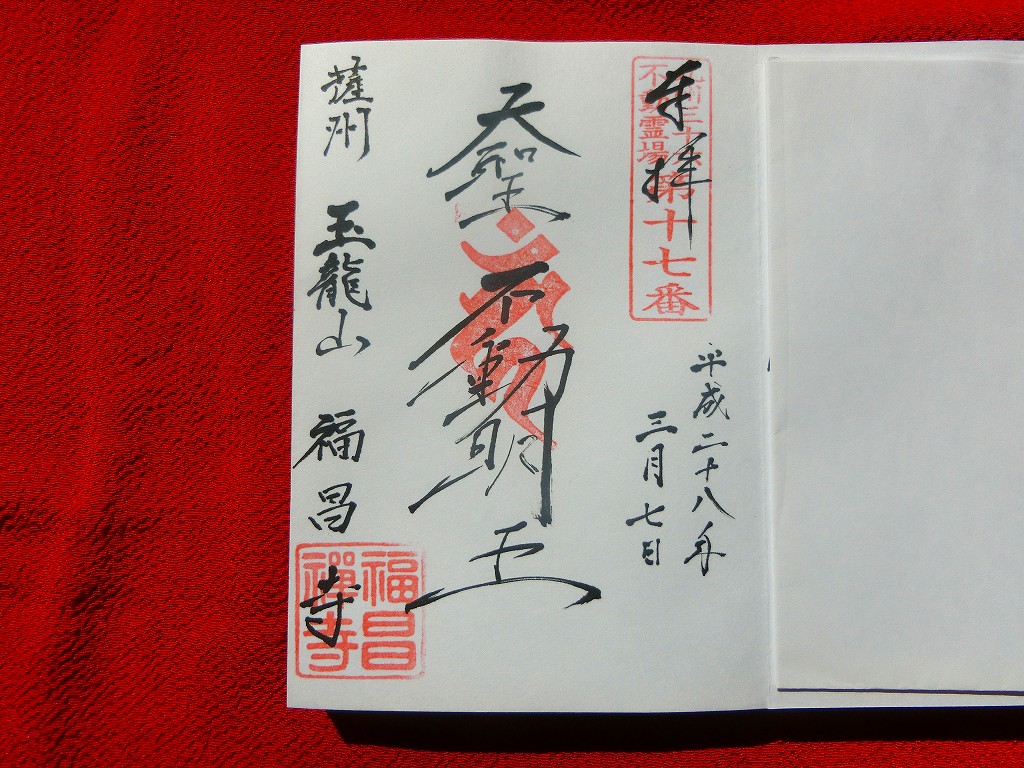 奉拝
九州三十六
不動霊場
第十七番
平成二十八年
三月七日
天聖不動明王
薩州 玉龍山 福昌寺
福昌
禪寺